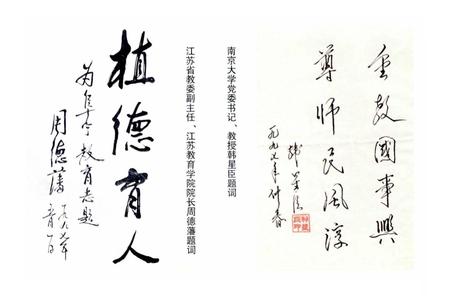 重教國事興
尊師民風淳
韩星臣
一九九七年仲春
南京大学党委书记、教授韩星臣题词
江苏省教委副主任、江苏教育学院院长周德藩题词
植德育人
为阜宁教育志题
周德藩
一九九七年